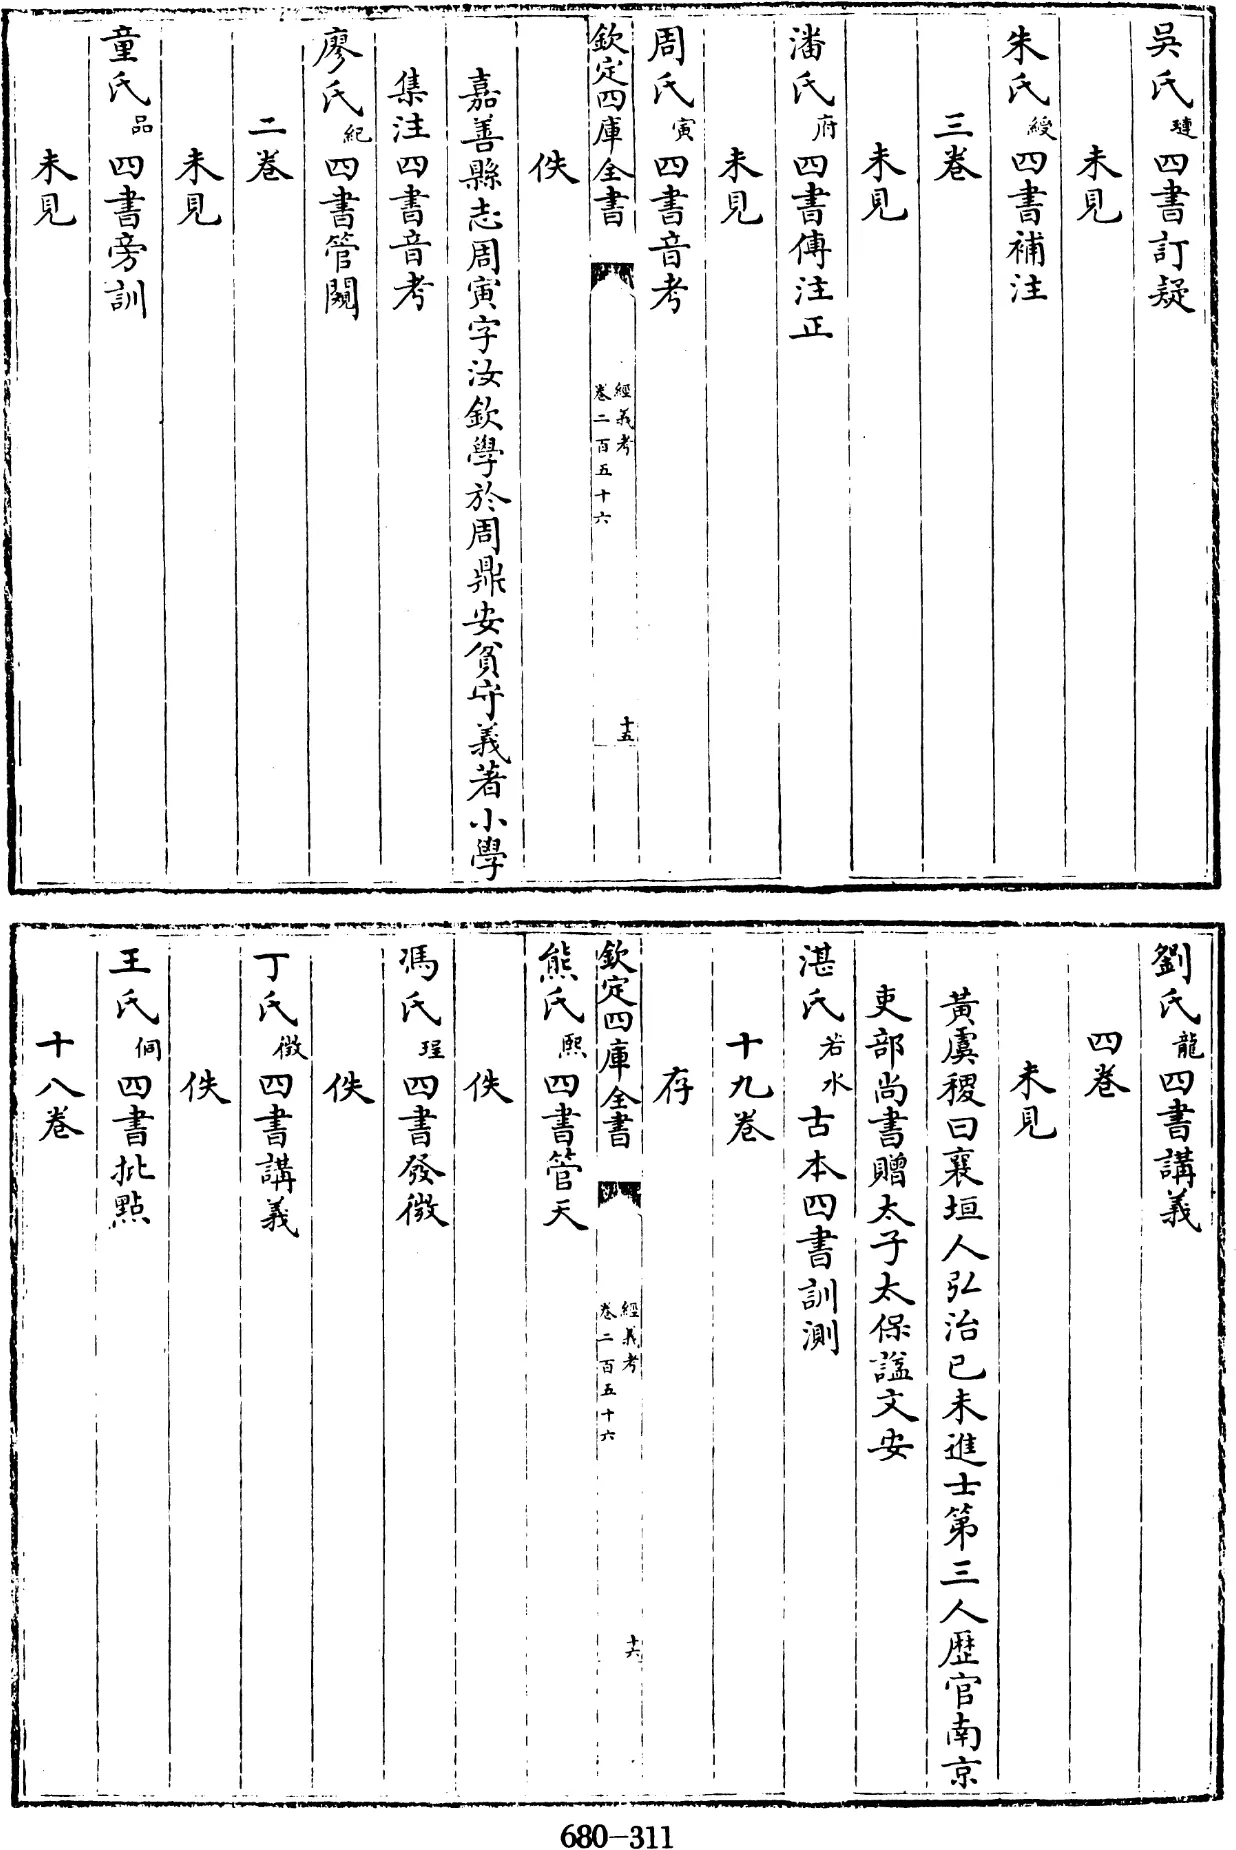 吳氏璉四書訂疑
未見
朱氏綬四書補注
三卷
未見
潘氏府四書傳注正
未見
周氏寅四書音考
欽定四庫全書
經義考
卷二百五十六
十五
佚
嘉善縣志周寅字汝欽學於周鼎安貧守義著小學
集注四書音考
廖氏紀四書管闚
二卷
未見
童氏品四書旁訓
未見
劉氏龍四書講義
四卷
未見
黃虞稷曰襄垣人弘治己未進士第三人歷官南京
吏部尚書贈太子太保諡文安
湛氏若水古本四書訓測
十九卷
存
欽定四庫全書
經義考
卷二百五十六
十六
熊氏熙四書管天
佚
馮氏珵四書發微
佚
丁氏徵四書講義
佚
王氏侗四書批點
十八卷
680-311